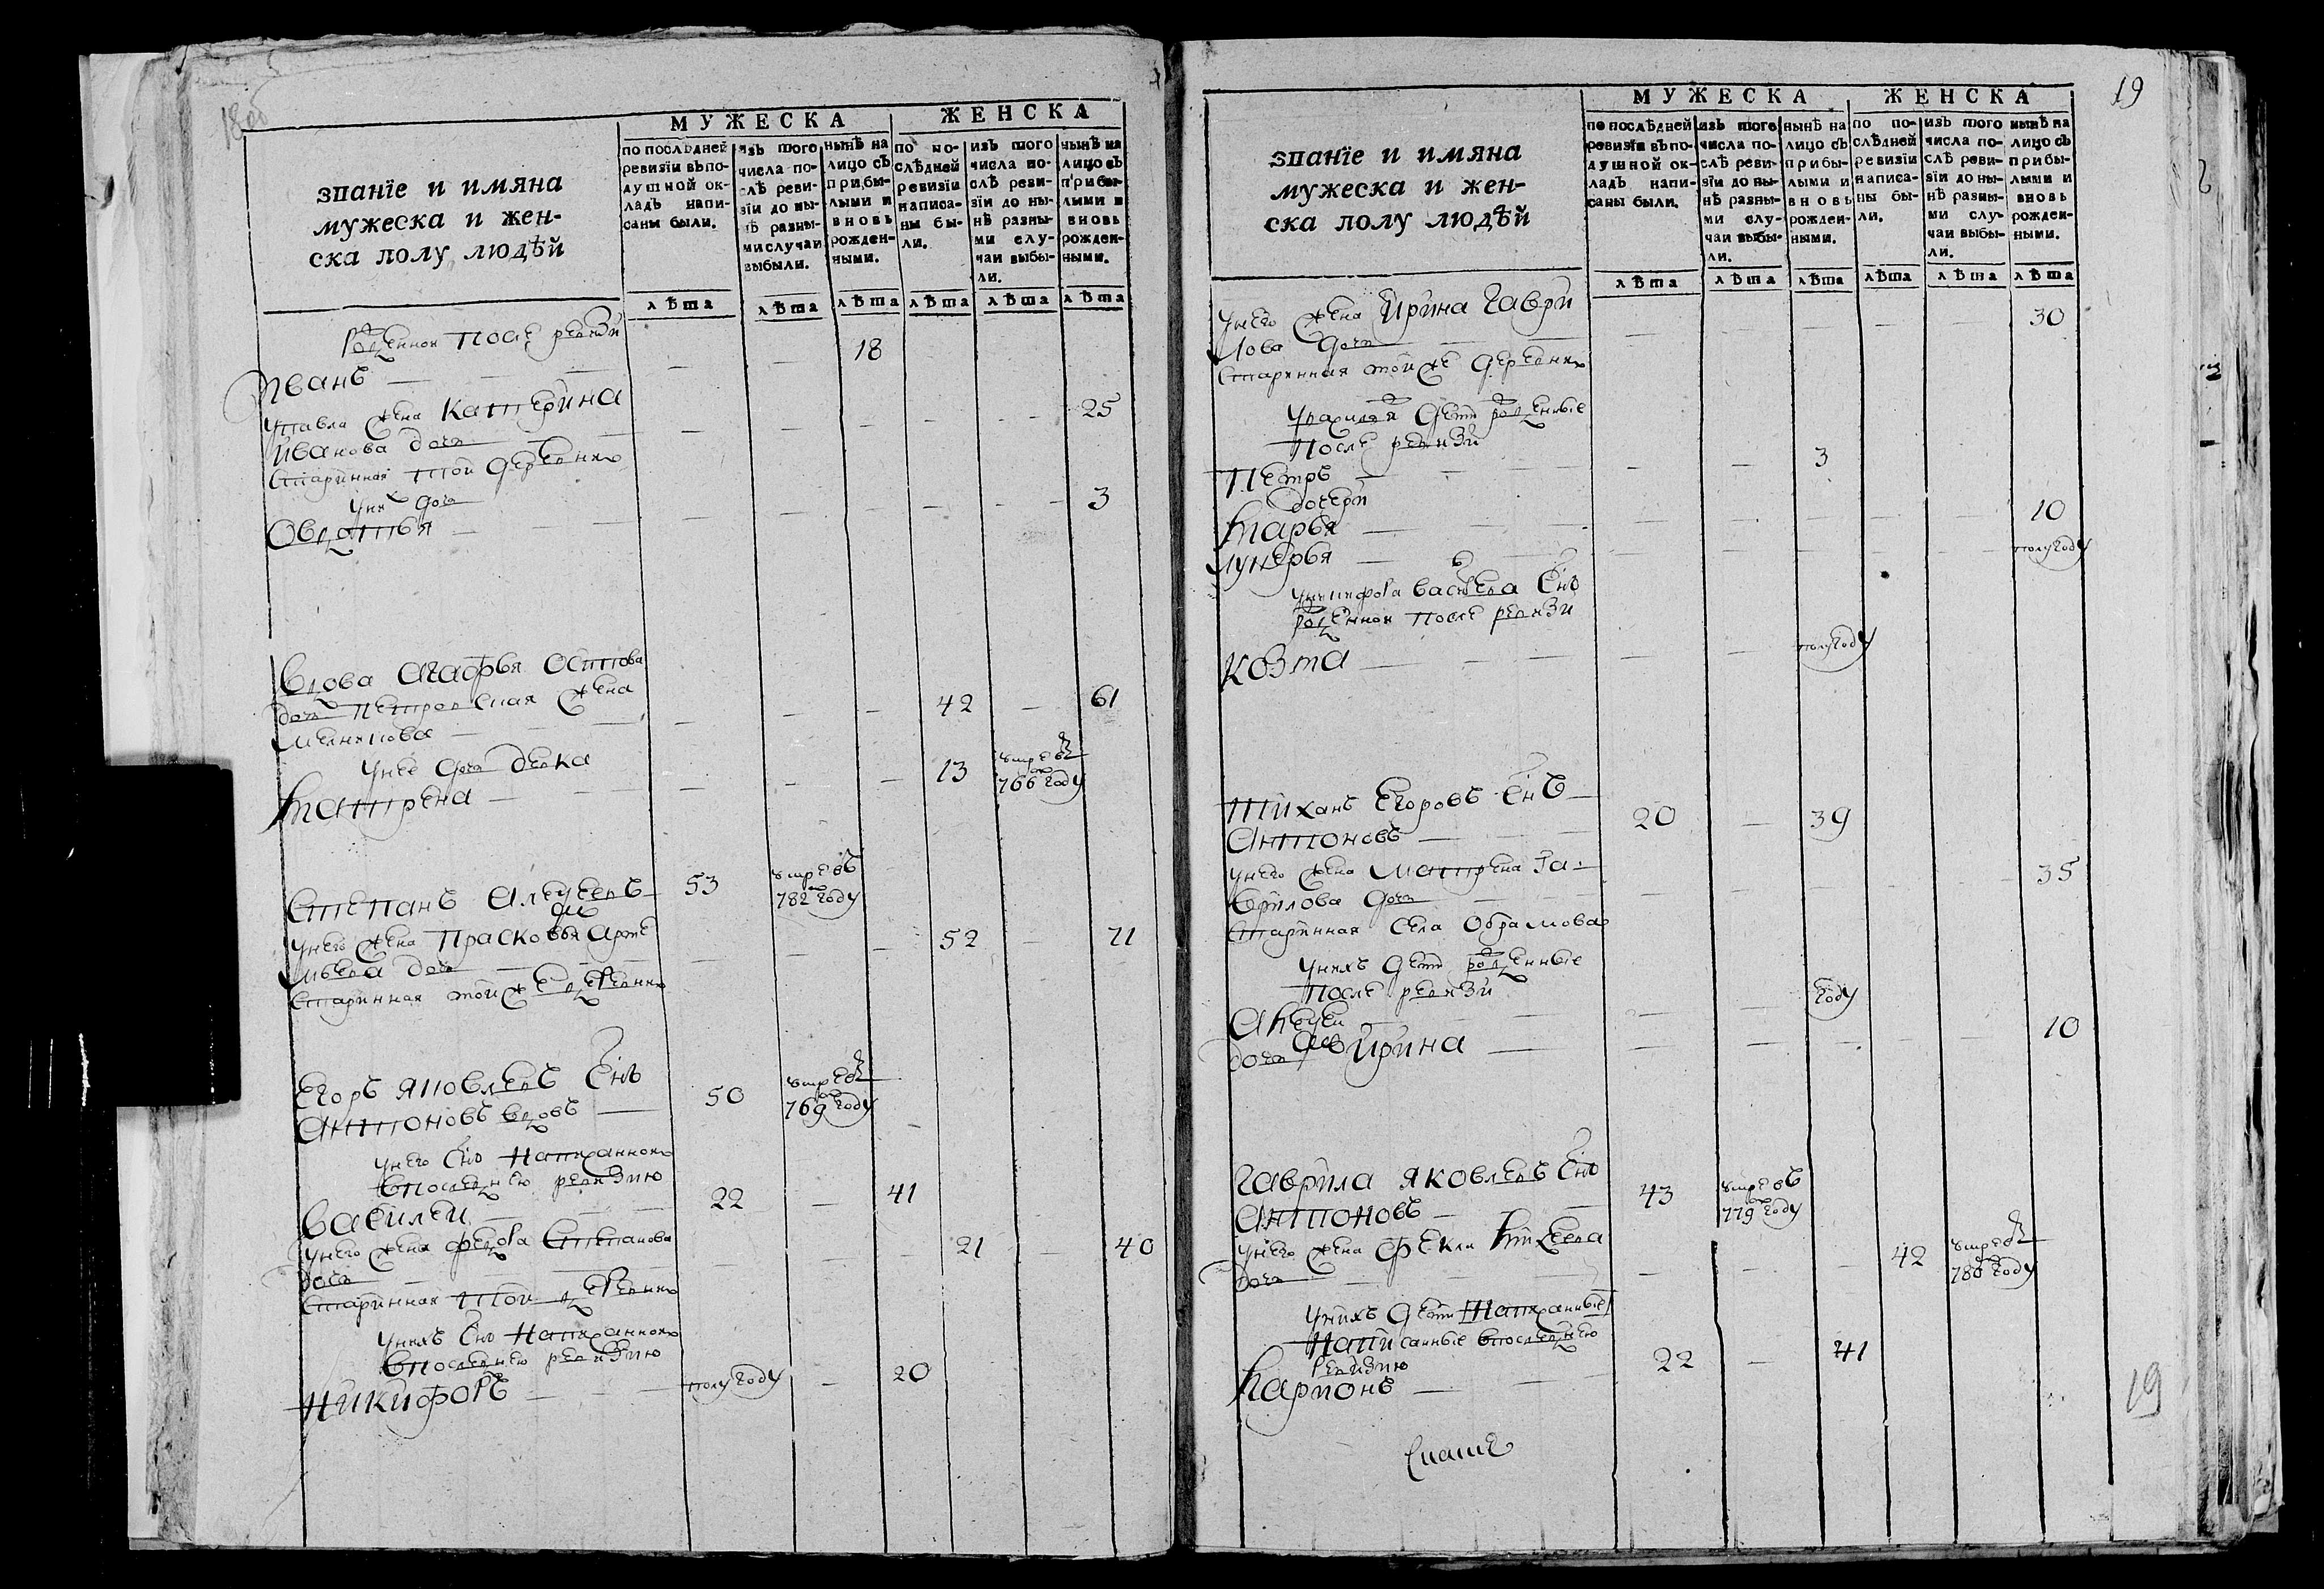 МУЖЕСКА
ЖЕНСКА
званїе и имяна
мужеска и жен-
ска полу людѣй
по послѣдней
ревизїи въ по-
душной ок-
ладъ напи-
саны были.
изъ того
числа по-
слѣ реви-
зїи до ны-
нѣ разны-
ми случаи
выбыли.
нынѣ на
лицо съ
прибы-
лыми и
вновь
рожден-
ными.
по по-
слѣдней
ревизїи
написа-
ны бы-
ли.
изъ того
числа по-
слѣ реви-
зїи до ны-
нѣ разны-
ми слу-
чаи выбы-
ли.
нынѣ на
лицо съ
прибы-
лыми и
вновь
рожден-
ными.
лѣта лѣта лѣта лѣта лѣта лѣта
рожденной после ревизїи
Иванъ 18
у павла жена Катерина
Иванова дочь 25
старинная той деревни
у них дочь
Овдотья 3
Вдова Агафья Осипова
дочь Петровская жена
42 61
у нее дочь девка
Матрена 13 умре въ 766 году
Степанъ Алексеевъ 53 умре въ 782 году
у него жена Прасковья Арте
мьева дочь 52 71
старинная той же деревни
Егоръ Яковлевъ сынъ
Антоновъ вдовъ 50 умре въ 769 году
у него сынъ написанной
в последнею ревизию
Василей 22 41
у него жена Федора Степанова
дочь 21 40
старинная той деревни
у нихъ сынъ написанной
в последнею ревизию
Никифоръ полугоду 20
19
МУЖЕСКА
ЖЕНСКА
званїе и имяна
мужеска и жен-
ска полу людѣй
по послѣдней
ревизїи въ по-
душной ок-
ладъ напи-
саны были.
изъ того
числа по-
слѣ реви-
зїи до ны-
нѣ разны-
ми слу-
чаи выбы-
ли.
нынѣ на
лицо съ
прибы-
лыми и
вновь
рожден-
ными.
по по-
слѣдней
ревизїи
написа-
ны бы-
ли.
изъ того
числа по-
слѣ реви-
зїи до ны-
нѣ разны-
ми слу-
чаи выбы-
ли.
нынѣ на
лицо съ
прибы-
лыми и
вновь
рожден-
ными.
лѣта лѣта лѣта лѣта лѣта лѣта
у него жена Ирина Гаври
лова дочь 30
старинная той же деревни
дети рожденные
после ревизїи
Петръ 3
дочери
Марья 10
Лукерья полугоду
у никифора Васильева сынъ
рожденной после ревизи
Козма полугоду
Тиханъ Егоровъ сынъ
Антоновъ 20 39
у него жена Матрена Га-
врилова дочь 35
старинная села Обрамова
у нихъ дети рожденные
после ревизїи
Алексей году
дочь Ирина 10
Гаврила Яковлевъ сынъ
Антоновъ 43 умре въ 779 году
у него жена Фекла Михеева
дочь 42 умре въ 780 году
у нихъ дети написанные
написанные в последнею
ревизию
Карпонъ 22 41
19